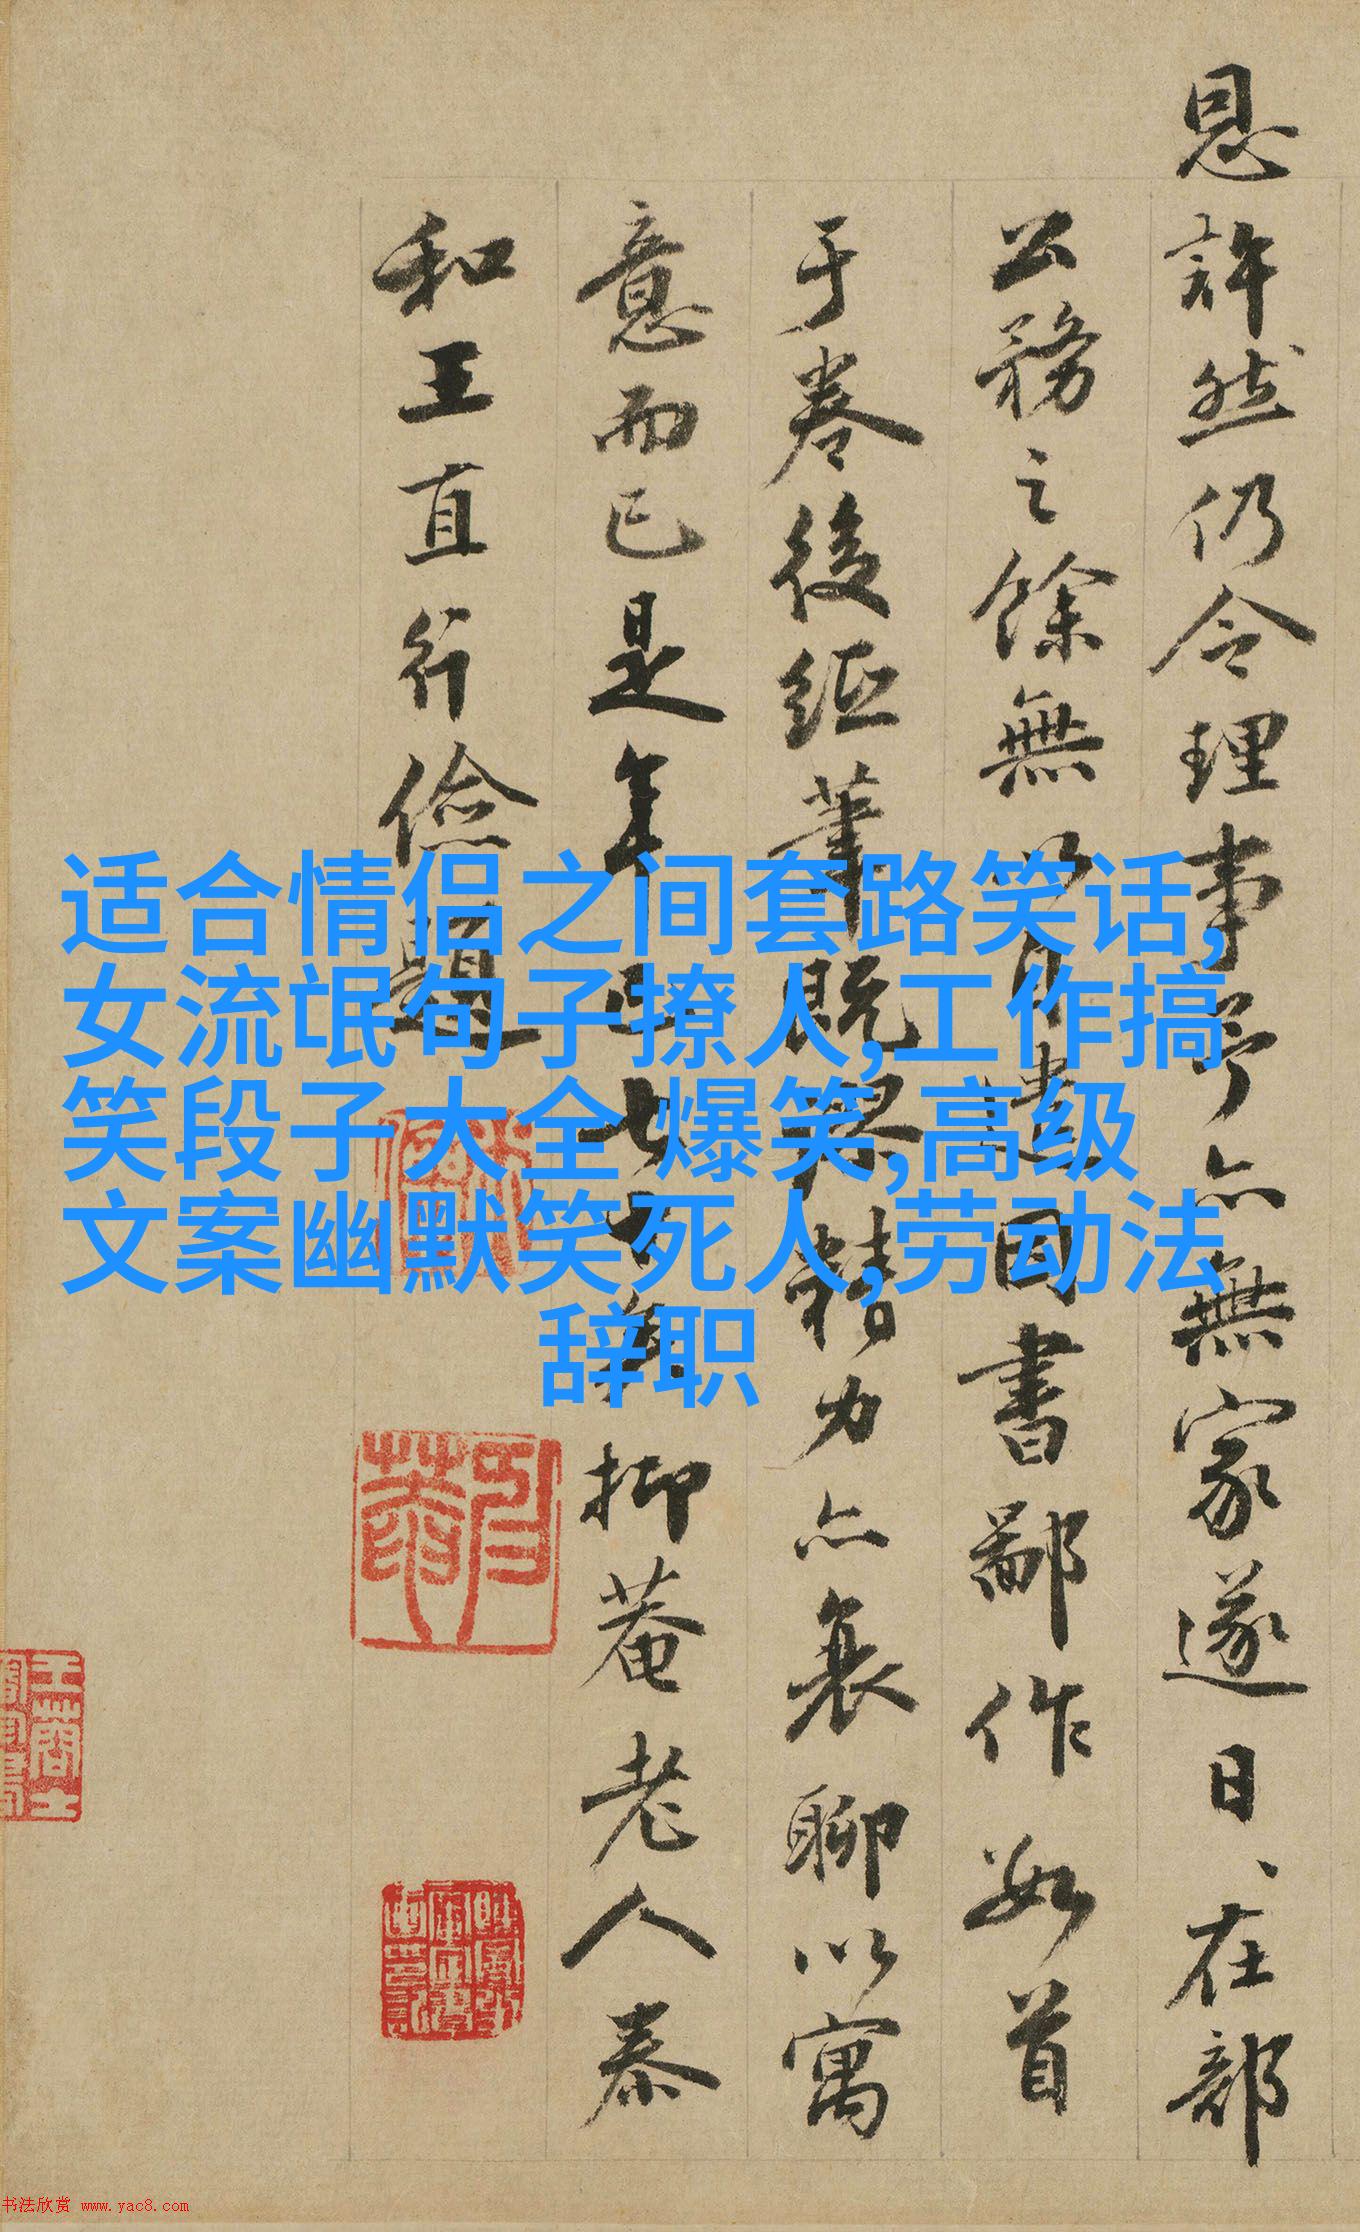 恩許然仍令理事予亦無家遂日、在部
公務之餘無以自遣因書鄙作数首
于卷後紙筆既精力亦衰聊以寓
意而已是年正七十抑菴老人泰
和王直行儉題
适合情侣之间套路笑话,
女流氓句子撩人,工作搞
笑段子大全 爆笑,高级
文案幽默笑死人,劳动法
辞职
书法欣赏 www.yac8.com